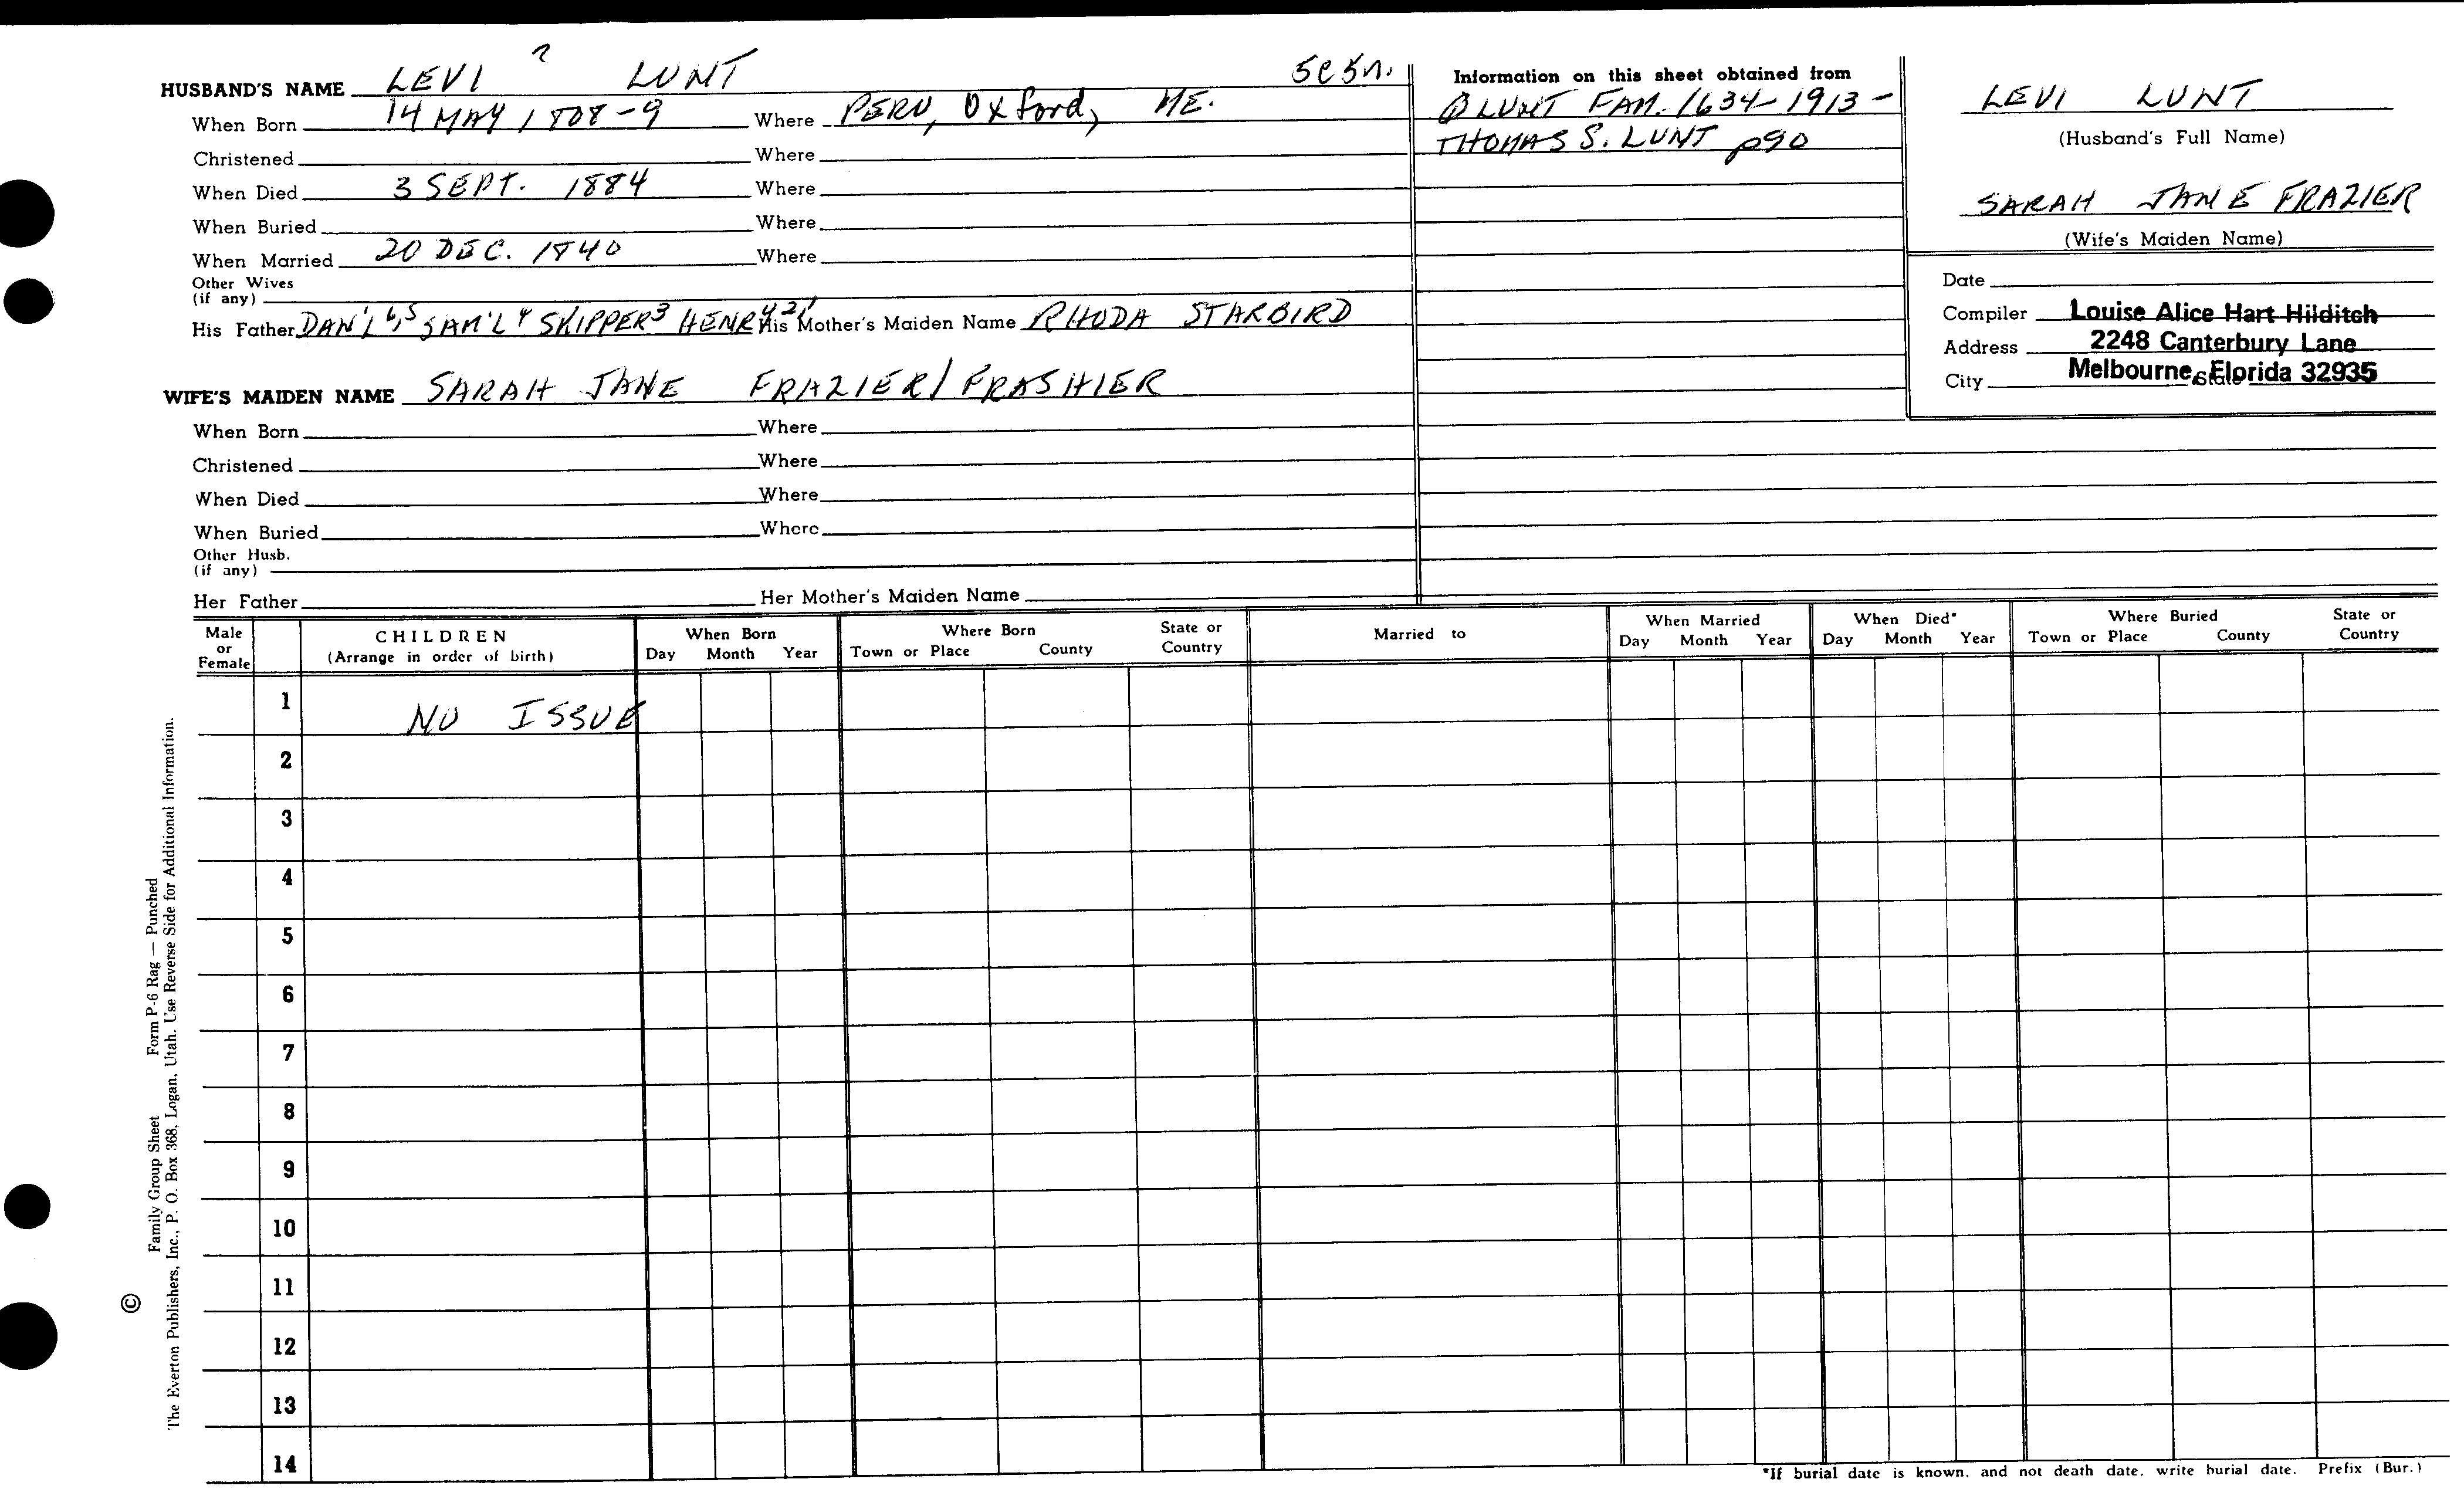 HUSBAND'S NAME LEVI ? LUNT 5e5n.
When Born 14 MAY 1808-9 Where PERU, Oxford, ME.
Christened Where
When Died 3 SEPT. 1884 Where
When Buried Where
When Married 20 DEC. 1840 Where
Other Wives
(if any)
His Father DAN'L 6,5 SAM'L 4 SKIPPER 3 HENRY 2,1 His Mother's Maiden Name RHODA STARBIRD
WIFE'S MAIDEN NAME SARAH JANE FRAZIER/FRASHIER
When Born Where
Christened Where
When Died Where
When Buried Where
Other Husb.
(if any)
Her Father Her Mother's Maiden Name
Information on this sheet obtained from
LUNT FAM. 1634-1913-
THOMAS S. LUNT p90
LEVI LUNT
(Husband's Full Name)
SARAH JANE FRAZIER
(Wife's Maiden Name)
Date
Compiler Louise Alice Hart Hilditch
Address 2248 Canterbury Lane
City Melbourne, Florida 32935 State
Male or Female
CHILDREN
(Arrange in order of birth)
When Born
Day Month Year
Where Born
Town or Place County State or Country
Married to
When Married
Day Month Year
When Died*
Day Month Year
Where Buried
Town or Place County State or Country
1 NO ISSUE
2
3
4
5
6
7
8
9
10
11
12
13
14
*If burial date is known, and not death date, write burial date. Prefix (Bur.)
Family Group Sheet Form P-6 Rag — Punched
© The Everton Publishers, Inc., P. O. Box 368, Logan, Utah. Use Reverse Side for Additional Information.